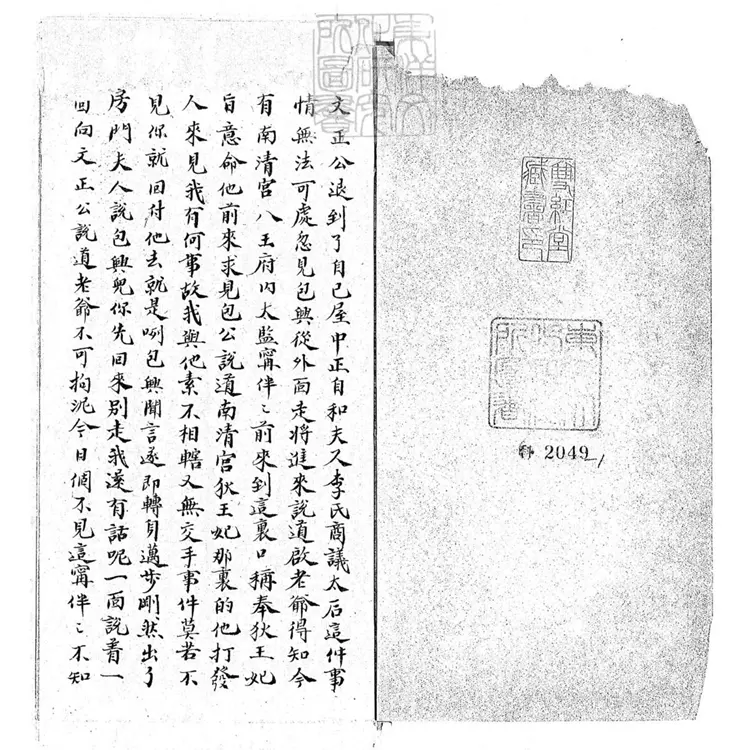 雙紅堂
藏書印
2049
文正公退到了自己屋中正自和夫人李氏商議太后這件事
情無法可處忽見包興從外面走將進來說道啟老爺得知今
有南清宮八王府內太監寗伴〻前來到這裏口稱奉狄王妃
旨意命他前來求見包公說道南清宮狄王妃那裏的他打發
人來見我有何事故我與他素不相轄又無交手事件莫若不
見你就回付他去就是咧包興聞言遂即轉身邁步剛然出了
房門夫人說包興兒你先回來別走我還有話呢一面說着一
回向文正公說道老爺不可拘泥今日個不見這寗伴〻不知